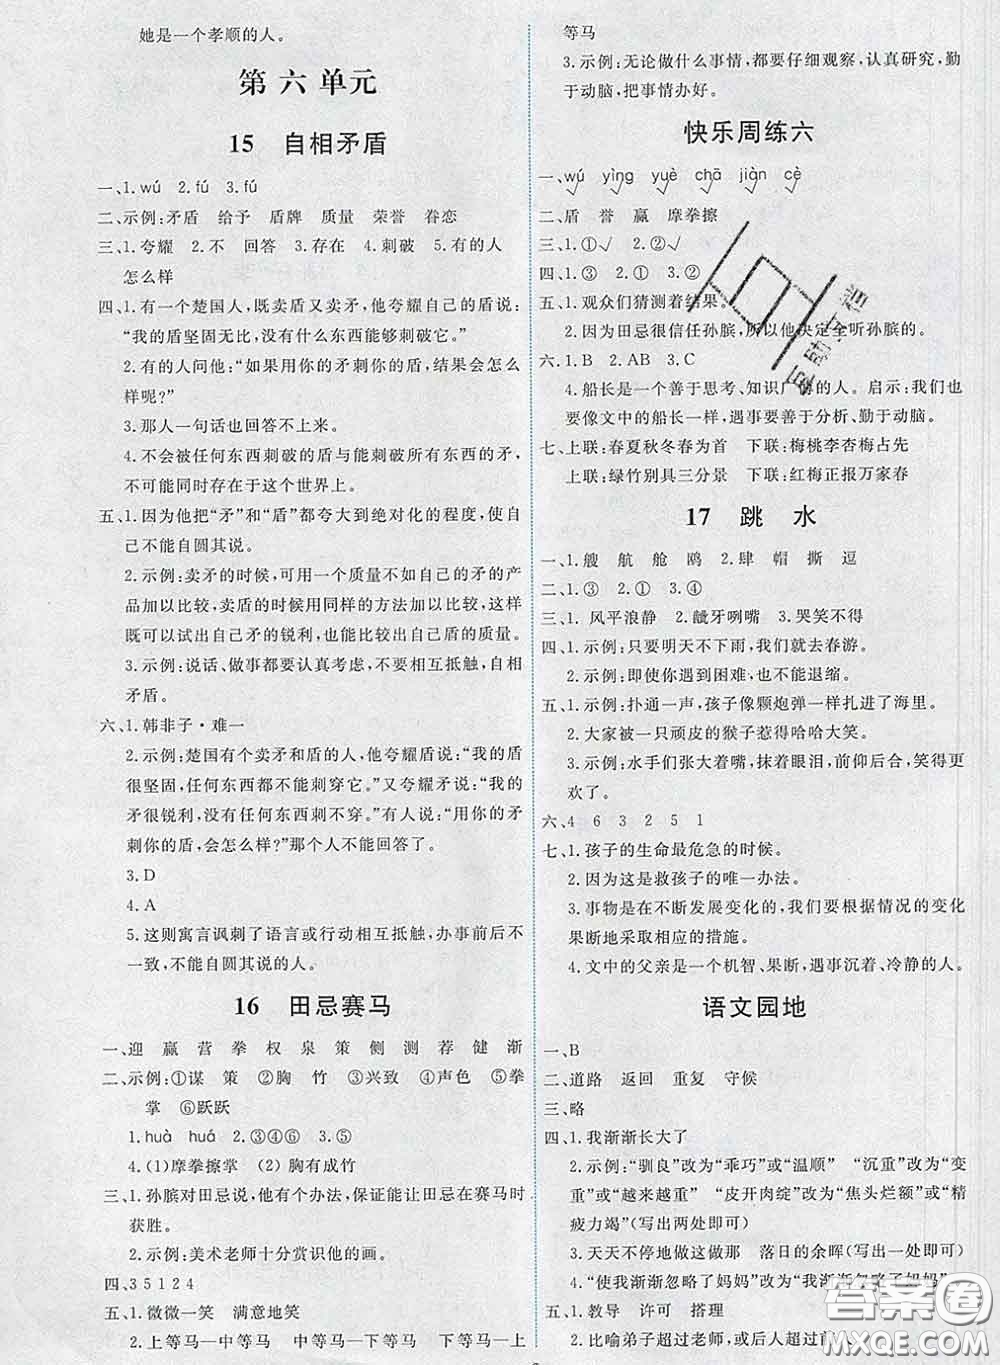 她是一个孝顺的人。
第六单元
15 自相矛盾
一、1.wú 2.fú 3.fú
二、示例:矛盾 给予 盾牌 质量 荣誉 眷恋
三、1.夸耀 2.不 回答 3.存在 4.刺破 5.有的人
怎么样
四、1.有一个楚国人,既卖盾又卖矛,他夸耀自己的盾说:
“我的盾坚固无比,没有什么东西能够刺破它。”
2.有的人问他:“如果用你的矛刺你的盾,结果会怎么
样呢?”
3.那人一句话也回答不上来。
4.不会被任何东西刺破的盾与能刺破所有东西的矛,
不可能同时存在于这个世界上。
五、1.因为他把“矛”和“盾”都夸大到绝对化的程度,使自
己不能自圆其说。
2.示例:卖矛的时候,可用一个质量不如自己的矛的产
品加以比较,卖盾的时候用同样的方法加以比较,这样
既可以试出自己矛的锐利,也能比较出自己盾的质量。
3.示例:说话、做事都要认真考虑,不要相互抵触,自相
矛盾。
六、1.韩非子·难一
2.示例:楚国有个卖矛和盾的人,他夸耀盾说:“我的盾
很坚固,任何东西都不能刺穿它。”又夸耀矛说:“我的
矛很锐利,没有任何东西刺不穿。”有人说:“用你的矛
刺你的盾,会怎么样?”那个人不能回答了。
3.D
4.A
5.这则寓言讽刺了语言或行动相互抵触,办事前后不
一致,不能自圆其说的人。
16 田忌赛马
一、迎 赢 营 拳 权 泉 策 侧 测 荐 健 渐
二、示例:①谋 策 ②胸 竹 ③兴致 ④声色 ⑤拳
掌 ⑥跃跃
1.huà huá 2.③④⑥ 3.⑤
4.(1)摩拳擦掌 (2)胸有成竹
三、1.孙膑对田忌说,他有个办法,保证能让田忌在赛马时
获胜。
2.示例:美术老师十分赏识他的画。
四、3 5 1 2 4
五、1.微微一笑 满意地笑
2.上等马—中等马 中等马—下等马 下等马—上
等马
3.示例:无论做什么事情,都要仔细观察,认真研究,勤
于动脑,把事情办好。
快乐周练六
一、wú yìng yuè chā jiàn cè
二、盾 誉 赢 摩拳擦
三、1.①√ 2.②√
四、1.③ 2.① 3.②
五、1.观众们猜测着结果。
2.因为田忌很信任孙膑,所以他决定全听孙膑的。
六、1.B 2.AB 3.C
4.船长是一个善于思考、知识广博的人。启示:我们也
要像文中的船长一样,遇事要善于分析、勤于动脑。
七、上联:春夏秋冬春为首 下联:梅桃李杏梅占先
上联:绿竹别具三分景 下联:红梅正报万家春
17 跳水
一、1.艘 航 舱 鸥 2.肆 帽 撕 逗
二、1.③ 2.① 3.④
三、1.风平浪静 2.龇牙咧嘴 3.哭笑不得
四、1.示例:只要明天不下雨,我们就去春游。
2.示例:即使你遇到困难,也不能退缩。
五、1.示例:扑通一声,孩子像颗炮弹一样扎进了海里。
2.大家被一只顽皮的猴子惹得哈哈大笑。
3.示例:水手们张大着嘴,抹着眼泪,前仰后合,笑得更
欢了。
六、4 6 3 2 5 1
七、1.孩子的生命最危急的时候。
2.因为这是救孩子的唯一办法。
3.事物是在不断发展变化的,要根据情况的变化
果断地采取相应的措施。
4.文中的父亲是一个机智、果断,遇事沉着、冷静的人。
语文园地
一、B
二、道路 返回 重复 守候
三、略
四、1.我渐渐长大了
2.示例:“驯良”改为“乖巧”或“温顺” “沉重”改为“变
重”或“越来越重” “皮开肉绽”改为“焦头烂额”或“精
疲力竭”(写出两处即可)
3.天天不停地做这做那 落日的余晖(写出一处即可)
4.“使我渐渐忽略了妈妈”改为“我渐渐忽略了妈妈”
五、1.教导 许可 搭理
2.比喻弟子超过老师,或后人超过前
答案圈
MXQE.COM